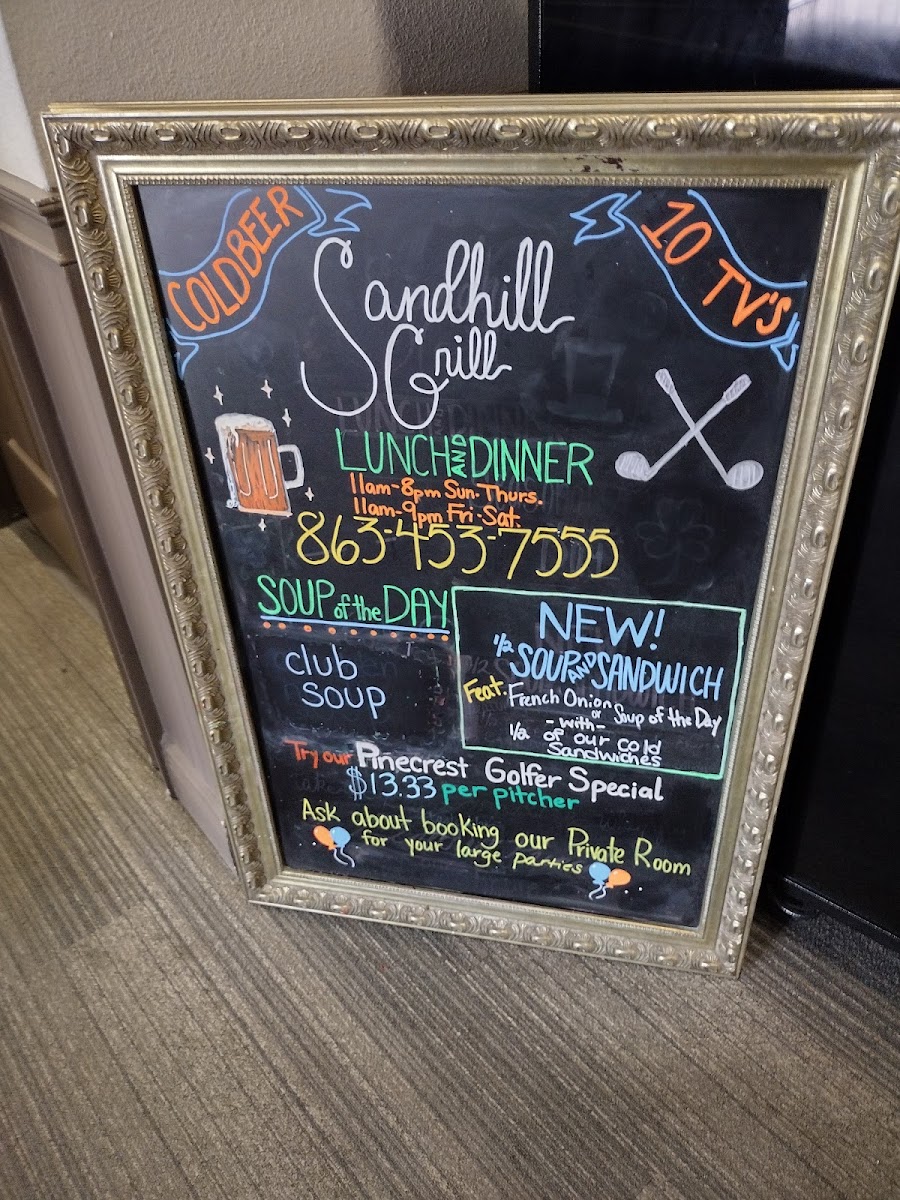 COLD BEER
10 TV'S
Sandhill
Grill
LUNCH AND DINNER
11am-8pm Sun-Thurs.
11am-9pm Fri-Sat.
863-453-7555
SOUP of the DAY
club
SOUP
NEW!
1/2 SOUP AND SANDWICH
Feat. French Onion or Soup of the Day
-with-
1/2 of our cold
Sandwiches
Try our Pinecrest Golfer Special
$13.33 per pitcher
Ask about booking our Private Room
for your large parties